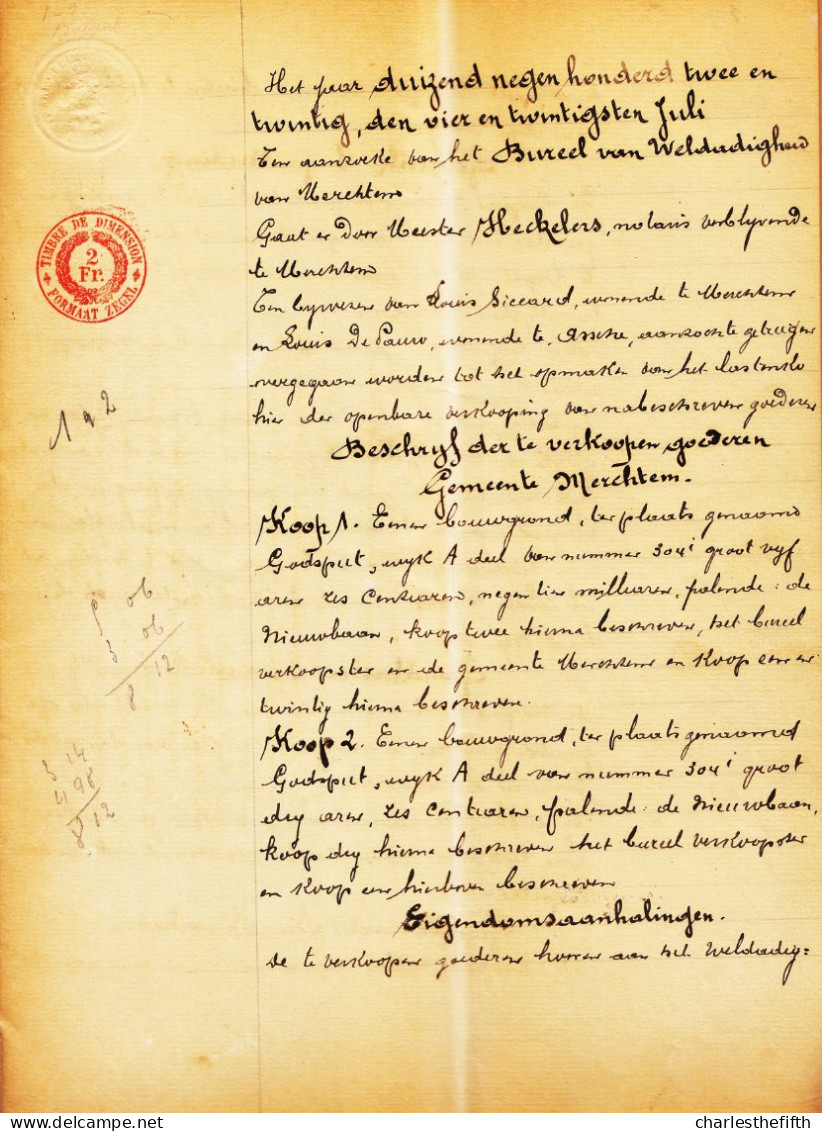 TIMBRE DE DIMENSION
2
Fr.
FORMAAT ZEGEL
1 a 2
5 06
3 06
8 12
3 14
4 98
8 12
Het jaar duizend negen honderd twee en
twintig, den vier en twintigsten Juli
Ten aanzoeke van het Bureel van Weldadigheid
van Merchtem
Gaat er door Meester Heckelers, notaris verblyvende
te Merchtem
Ten bywezen van Louis Siccard, wonende te Merchtem
en Louis De Pauw, wonende te Assche, aanzochte getuigen
overgegaan worden tot het opmaken van het lastenko
hier der openbare verkooping van nabeschreven goederen
Beschryf der te verkoopen goederen
Gemeente Merchtem.
Koop 1. Eenen bouwgrond, ter plaats genaamd
Godsput, wyk A deel van nummer 304i groot vyf
aren zes centiaren, negen tien milliaren, palende: de
Nieuwbaan, koop twee hierna beschreven, het bureel
verkoopster en de gemeente Merchtem en koop een en
twintig hierna beschreven.
Koop 2. Eenen bouwgrond, ter plaats genaamd
Godsput, wyk A deel van nummer 304i groot
dry aren, zes centiaren, palende: de Nieuwbaan,
koop dry hierna beschreven het bureel verkoopster
en koop een hierboven beschreven
Eigendomsaanhalingen.
De te verkoopen goederen hooren aan het Weldadig=
charlesthefifth